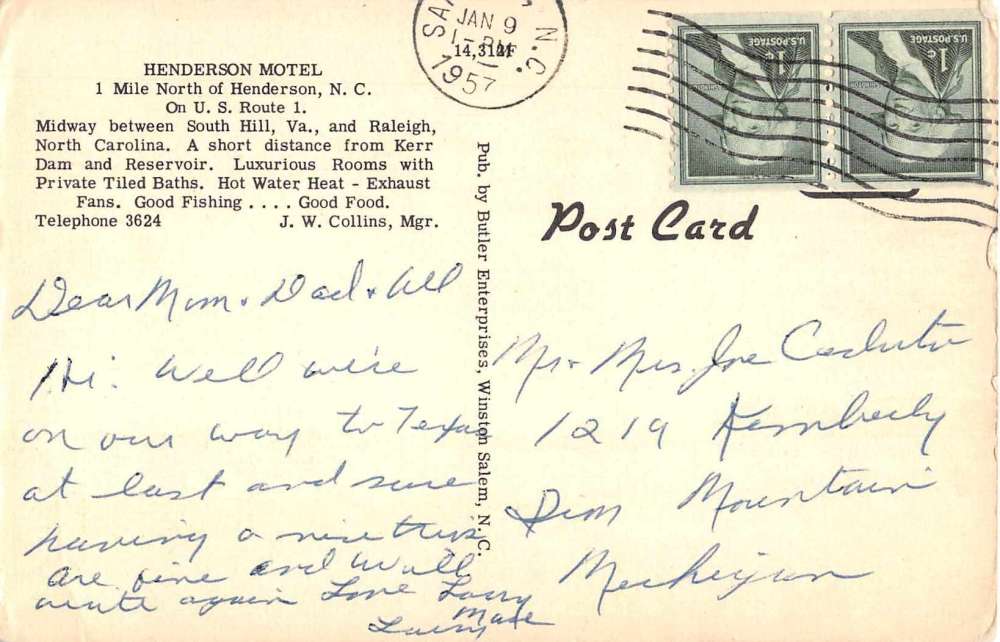 HENDERSON MOTEL
1 Mile North of Henderson, N. C.
On U. S. Route 1.
Midway between South Hill, Va., and Raleigh,
North Carolina. A short distance from Kerr
Dam and Reservoir. Luxurious Rooms with
Private Tiled Baths. Hot Water Heat - Exhaust
Fans. Good Fishing . . . . Good Food.
Telephone 3624 J. W. Collins, Mgr.
Dear Mom + Dad + All
Hi. Well we're
on our way to Texas
at last and sure
having a nice trip
are fine and we'll
write again Love Larry
Larry Mae
Pub. by Butler Enterprises, Winston Salem, N. C.
JAN 9
1957
N.C.
U.S.POSTAGE
1¢
U.S.POSTAGE
1¢
Post Card
Mr + Mrs. Joe
1219 Kimberly
Iron Mountain
Michigan